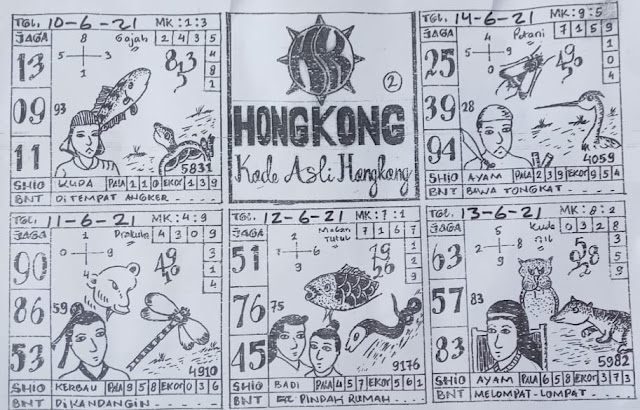 TGL. 10-6-21 MK: 1:3
JAGA
Gajah 2 4 3 5
13
09
11
8
5 1
3
93
5831
SHIO KUDA PALA 1 1 0 EKOR 1 3 9
BNT DITEMPAT ANGKER
2
HONGKONG
Kode Asli Hongkong
TGL. 14-6-21 MK: 9:5
JAGA
Petani 7 1 5 9
25
39
94
4
5 9
0
28
1
0
4
4059
SHIO AYAM PALA 2 3 9 EKOR 9 5 4
BNT BAWA TONGKAT
TGL. 11-6-21 MK: 4:9
JAGA
4 3 0 9
90
86
53
1
0 9
4
59
3
1
4910
SHIO KERBAU PALA 9 5 8 EKOR 0 3 6
BNT DIKANDANGIN
TGL. 12-6-21 MK: 7:1
JAGA
7 1 6 7
51
76
45
7 9
6
75
9176
SHIO BADI PALA 4 5 7 EKOR 5 6 1
BNT PINDAH RUMAH
TGL. 13-6-21 MK: 8:2
JAGA
Kuda Nil 0 3 2 8
63
57
83
2
5 9
8
83
5982
SHIO AYAM PALA 6 5 8 EKOR 3 7 3
BNT MELOMPAT-LOMPAT